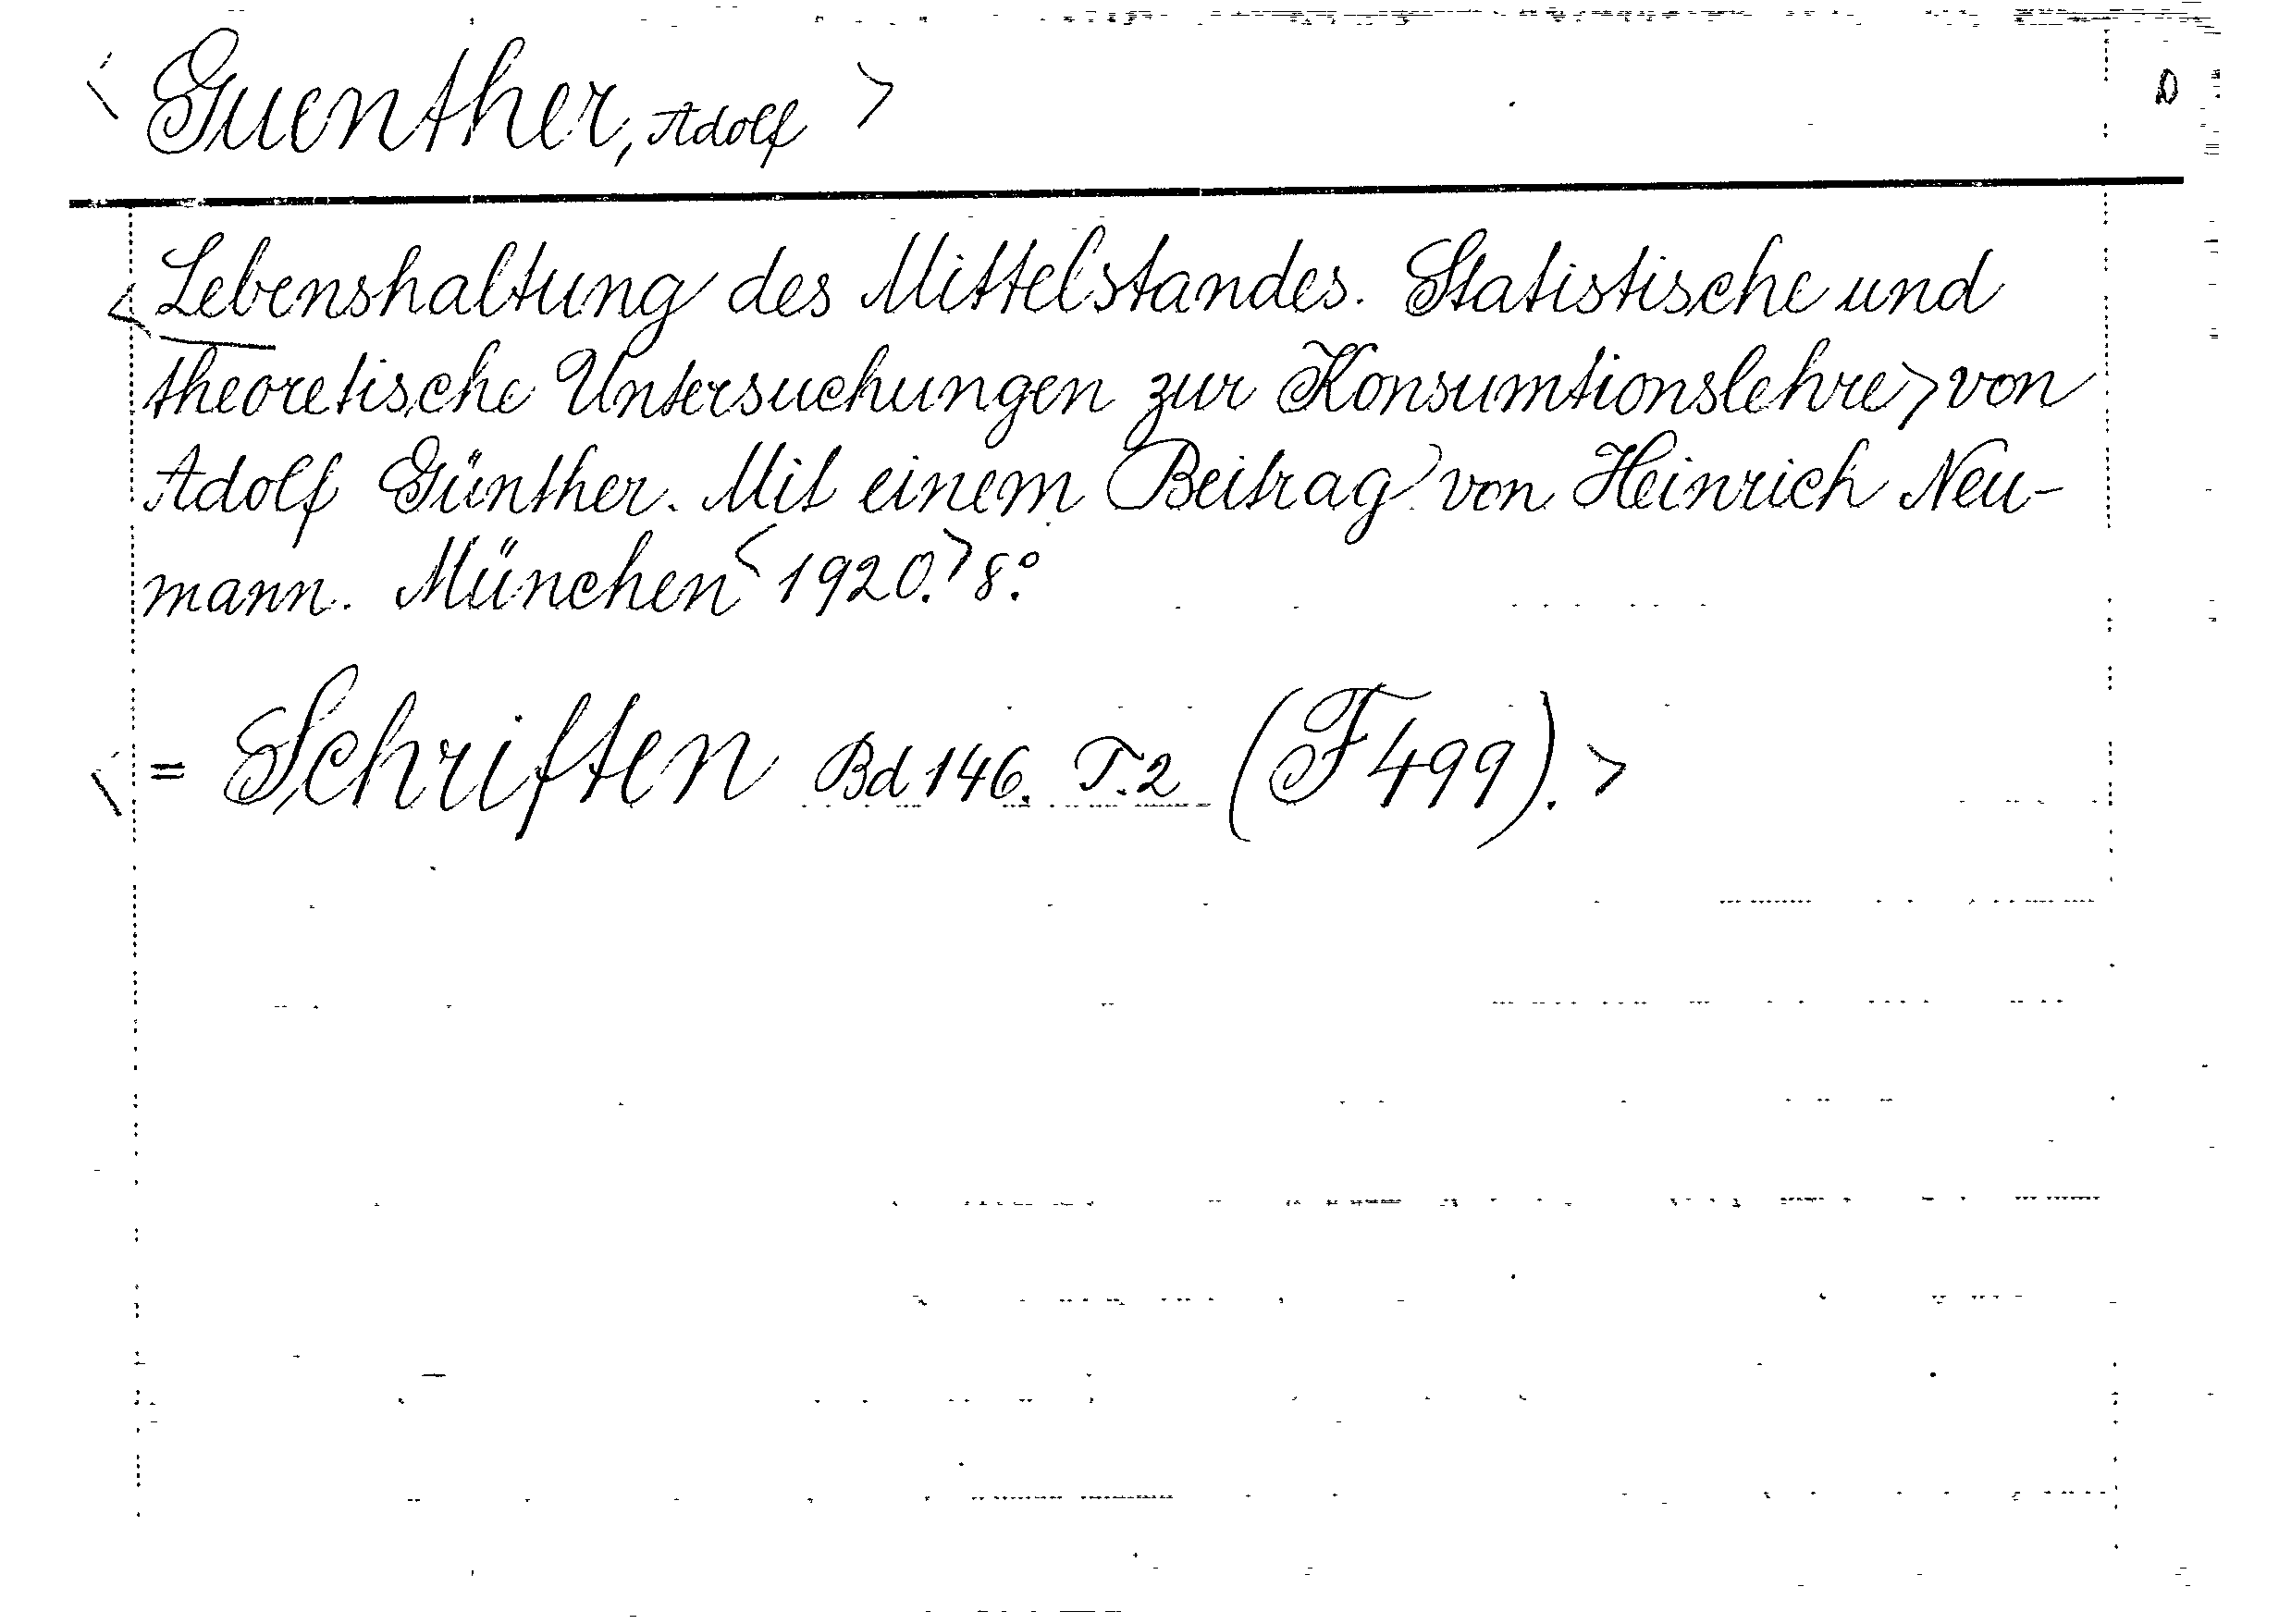 < Guenther, Adolf >
D
< Lebenshaltung des Mittelstandes. Statistische und
theoretische Untersuchungen zur Konsumtionslehre > von
Adolf Günther. Mit einem Beitrag von Heinrich Neu-
mann. München < 1920. > 8°.
< = Schriften Bd 146. T. 2 (F 499). >